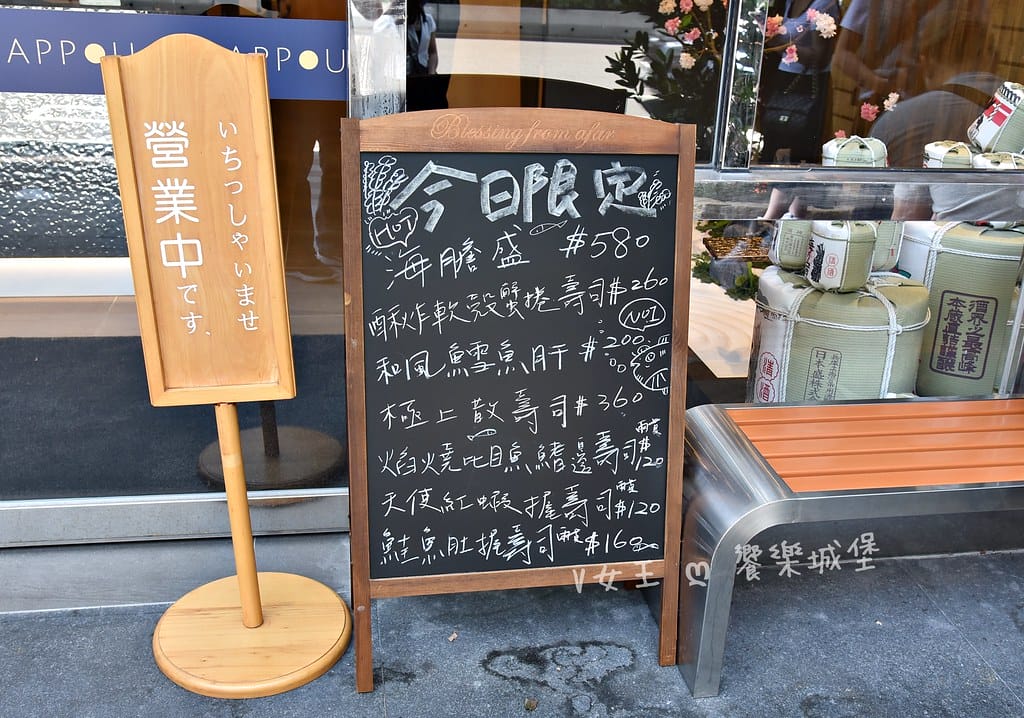 APPOU
APPOU
いちつしゃいませ
營業中です、
Blessing from afar
今日限定
HOT
海膽盛 $580
酥炸軟殼蟹捲壽司$260
NO1
和風鱈魚肝 $200
極上散壽司$360
焰燒比目魚鰭邊壽司兩貫$120
天使紅蝦握壽司兩貫$120
鮭魚肚握壽司兩貫$160
清酒
日本盛株式
酒京之最高峰
本蔵直詰謹製
V女王
饗樂城堡